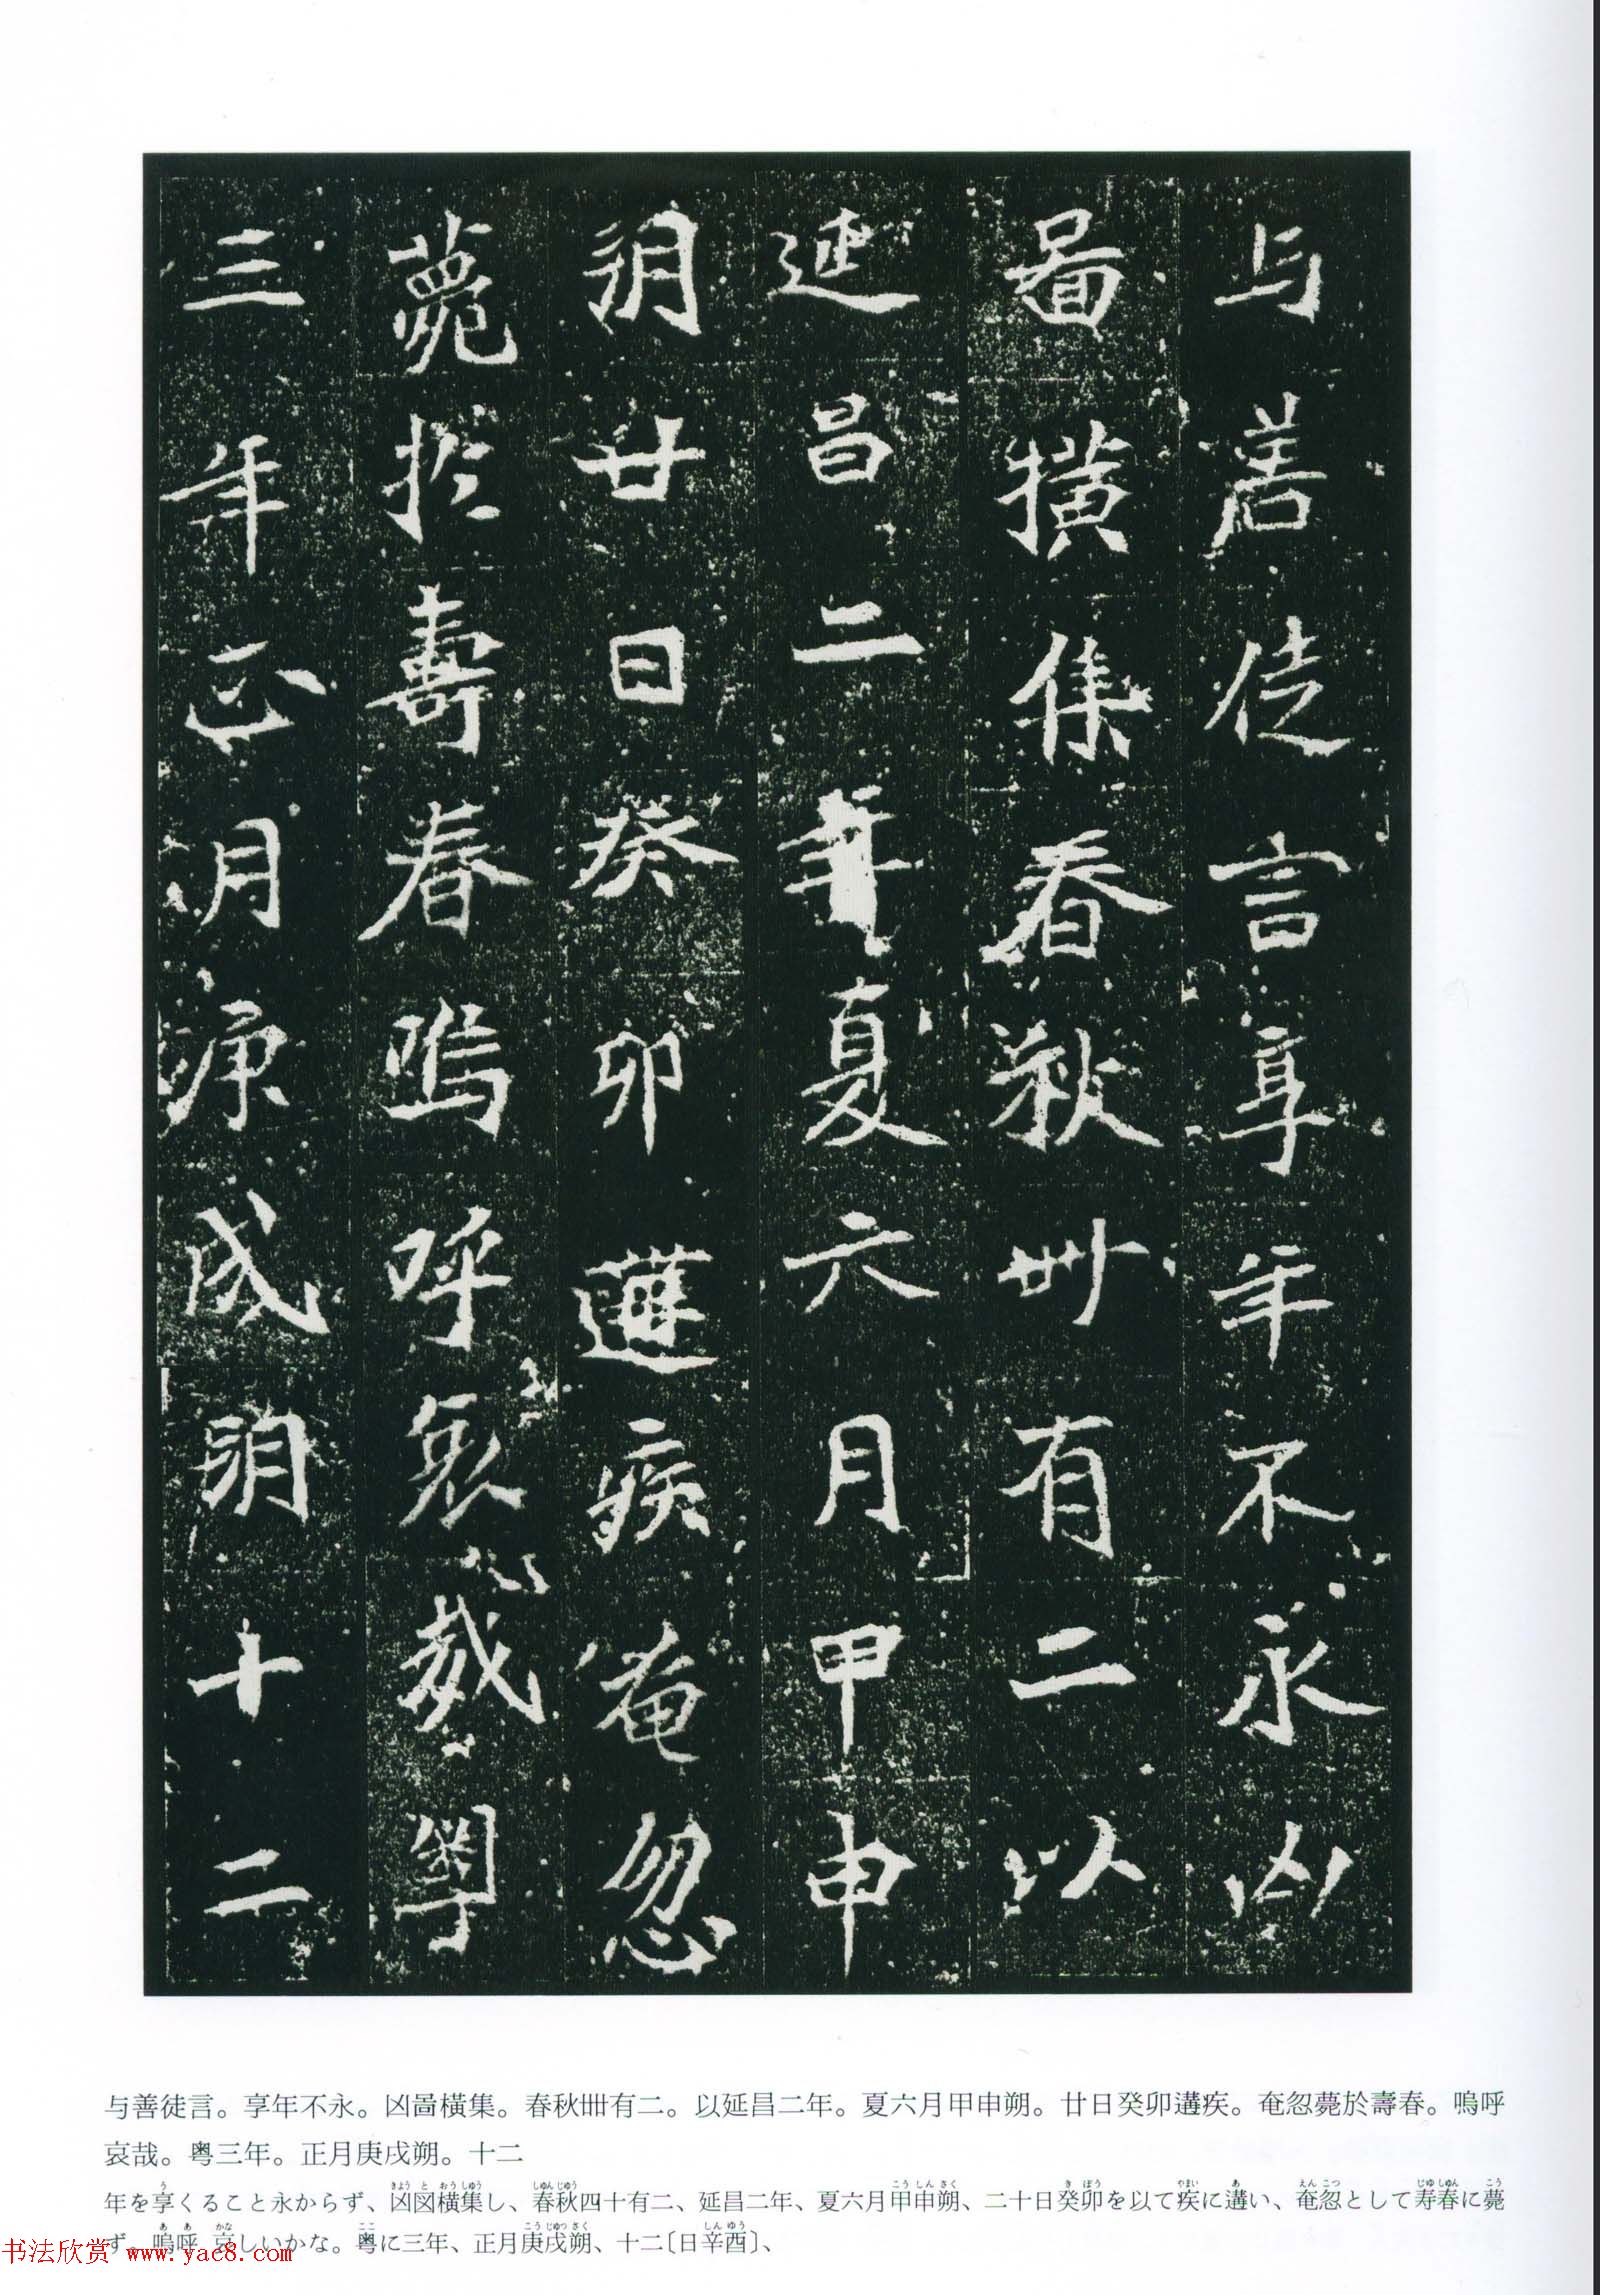 与善徒言享年不永凶
啚橫集春秋卌有二以
延昌二年夏六月甲申
朔廿日癸卯遘疾奄忽
薨於壽春嗚呼哀哉粤
三年正月庚戌朔十二
与善徒言。享年不永。凶啚橫集。春秋卌有二。以延昌二年。夏六月甲申朔。廿日癸卯遘疾。奄忽薨於壽春。嗚呼
哀哉。粤三年。正月庚戌朔。十二
年を享くること永からず、凶図横集し、春秋四十有二、延昌二年、夏六月甲申朔、二十日癸卯を以て疾に遘い、奄忽として寿春に薨
ず。嗚呼 哀しいかな。粤に三年、正月庚戌朔、十二〔日辛酉〕、
书法欣赏 www.yac8.com